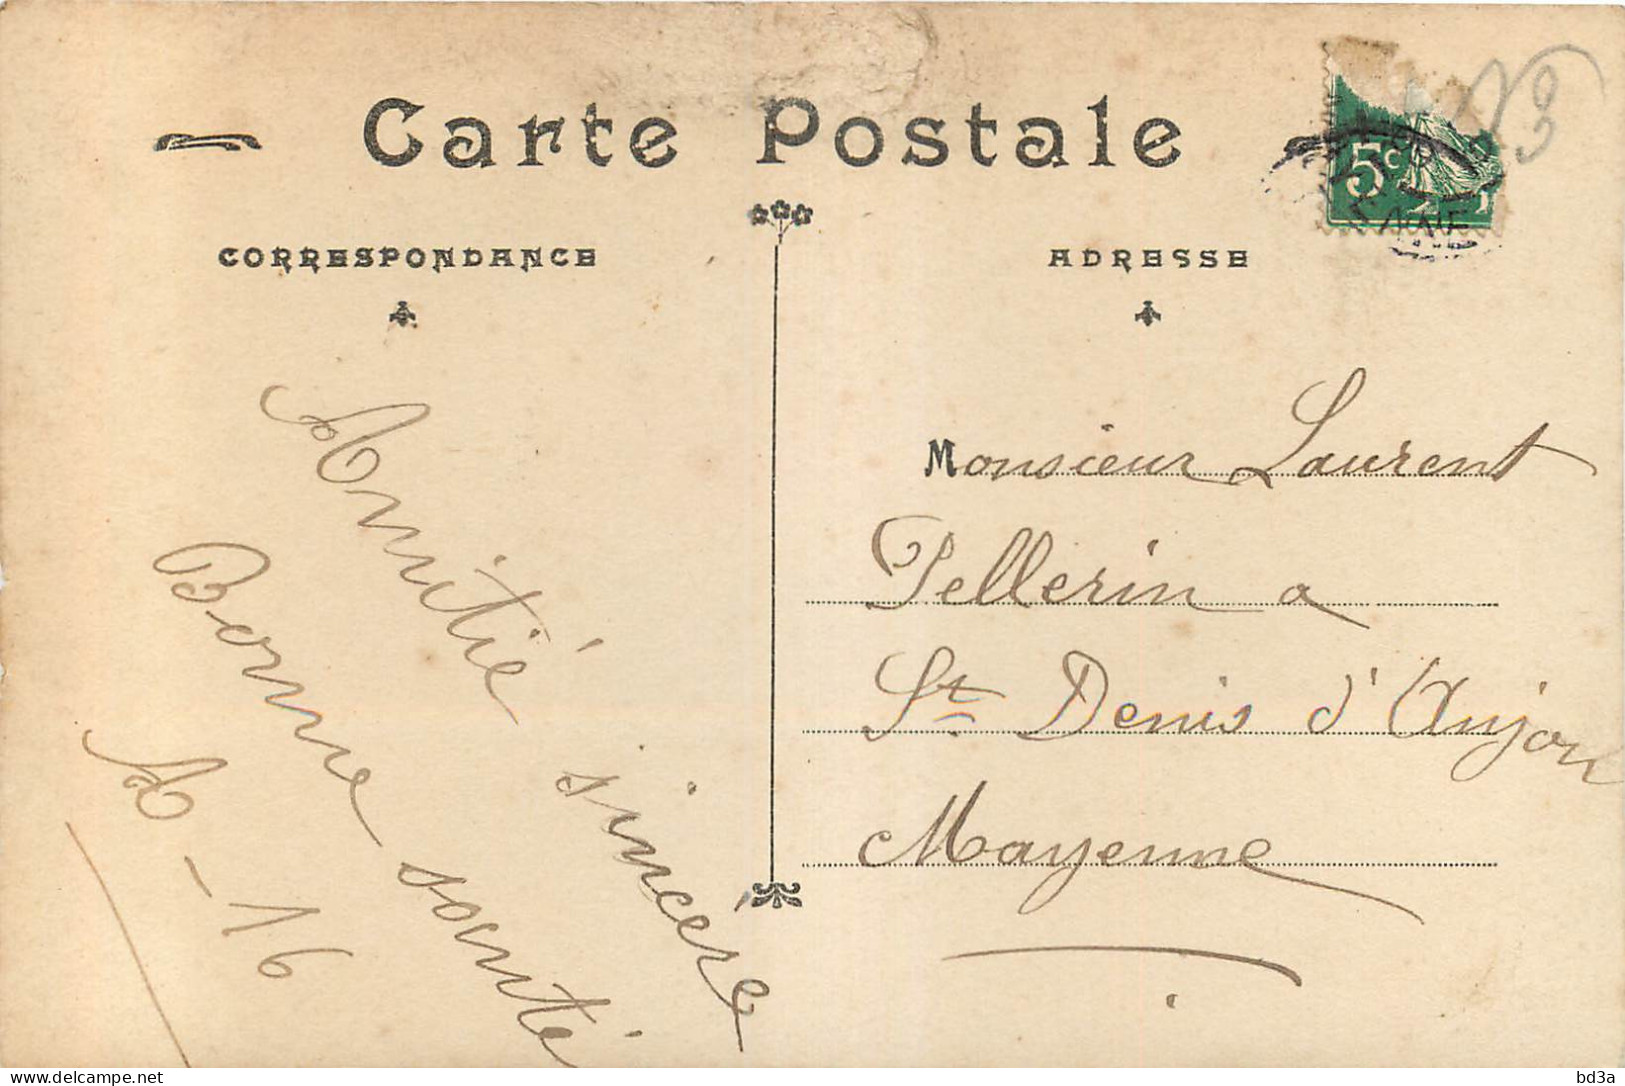 Carte Postale
CORRESPONDANCE
ADRESSE
5c
53
Amitié sincère
Bonne santé
A - 16
Monsieur Laurent
Pellerin a
St Denis d'Anjou
Mayenne
delcampe.net
bd3a